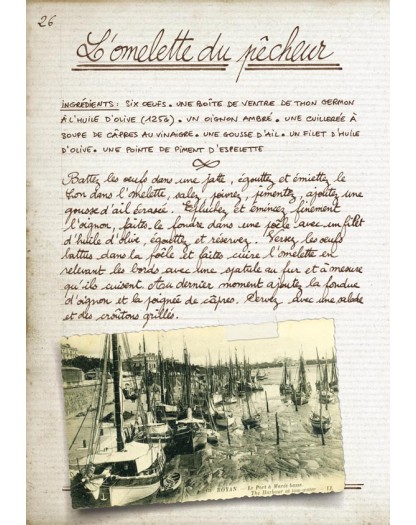 26
L'omelette du pêcheur
INGRÉDIENTS : SIX ŒUFS . UNE BOÎTE DE VENTRE DE THON GERMON
À L'HUILE D'OLIVE (125G) . UN OIGNON AMBRÉ . UNE CUILLERÉE À
SOUPE DE CÂPRES AU VINAIGRE . UNE GOUSSE D'AIL . UN FILET D'HUILE
D'OLIVE . UNE POINTE DE PIMENT D'ESPELETTE
Battez les œufs dans une jatte, égouttez et émiettez le
thon dans l'omelette, salez, poivrez, pimentez, ajoutez une
gousse d'ail écrasée. Epluchez et émincez finement
l'oignon, faites le fondre dans une poêle avec un filet
d'huile d'olive, égouttez et réservez. Versez les œufs
battus dans la poêle et faites cuire l'omelette en
relevant les bords avec une spatule au fur et à mesure
qu'ils cuisent. Au dernier moment ajoutez la fondue
d'oignon et la poignée de câpres. Servez avec une salade
et des croûtons grillés.
ROYAN - Le Port à Marée basse
The Harbour at low-water LL